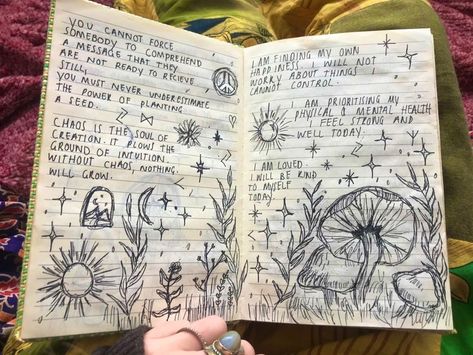 YOU CANNOT FORCE
SOMEBODY TO COMPREHEND
A MESSAGE THAT THEY
ARE NOT READY TO RECIEVE
STILL,
YOU MUST NEVER UNDERESTIMATE
THE POWER OF PLANTING
A SEED.
CHAOS IS THE SOUL OF
CREATION. IT PLOWS THE
GROUND OF INTUITION.
WITHOUT CHAOS, NOTHING
WILL GROW.
I AM FINDING MY OWN
HAPPINESS. I WILL NOT
WORRY ABOUT THINGS I
CANNOT CONTROL.
I AM PRIORITISING MY
PHYSICAL & MENTAL HEALTH
I FEEL STRONG AND
WELL TODAY.
I AM LOVED.
I WILL BE KIND
TO MYSELF
TODAY.